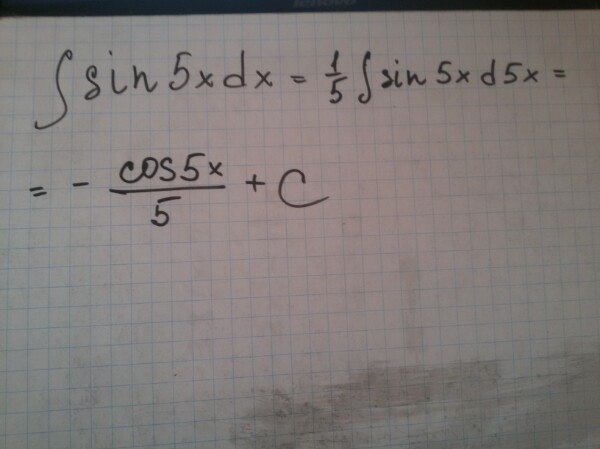 ∫ sin 5x dx = 1/5 ∫ sin 5x d 5x =
= - cos 5x / 5 + C
lenovo